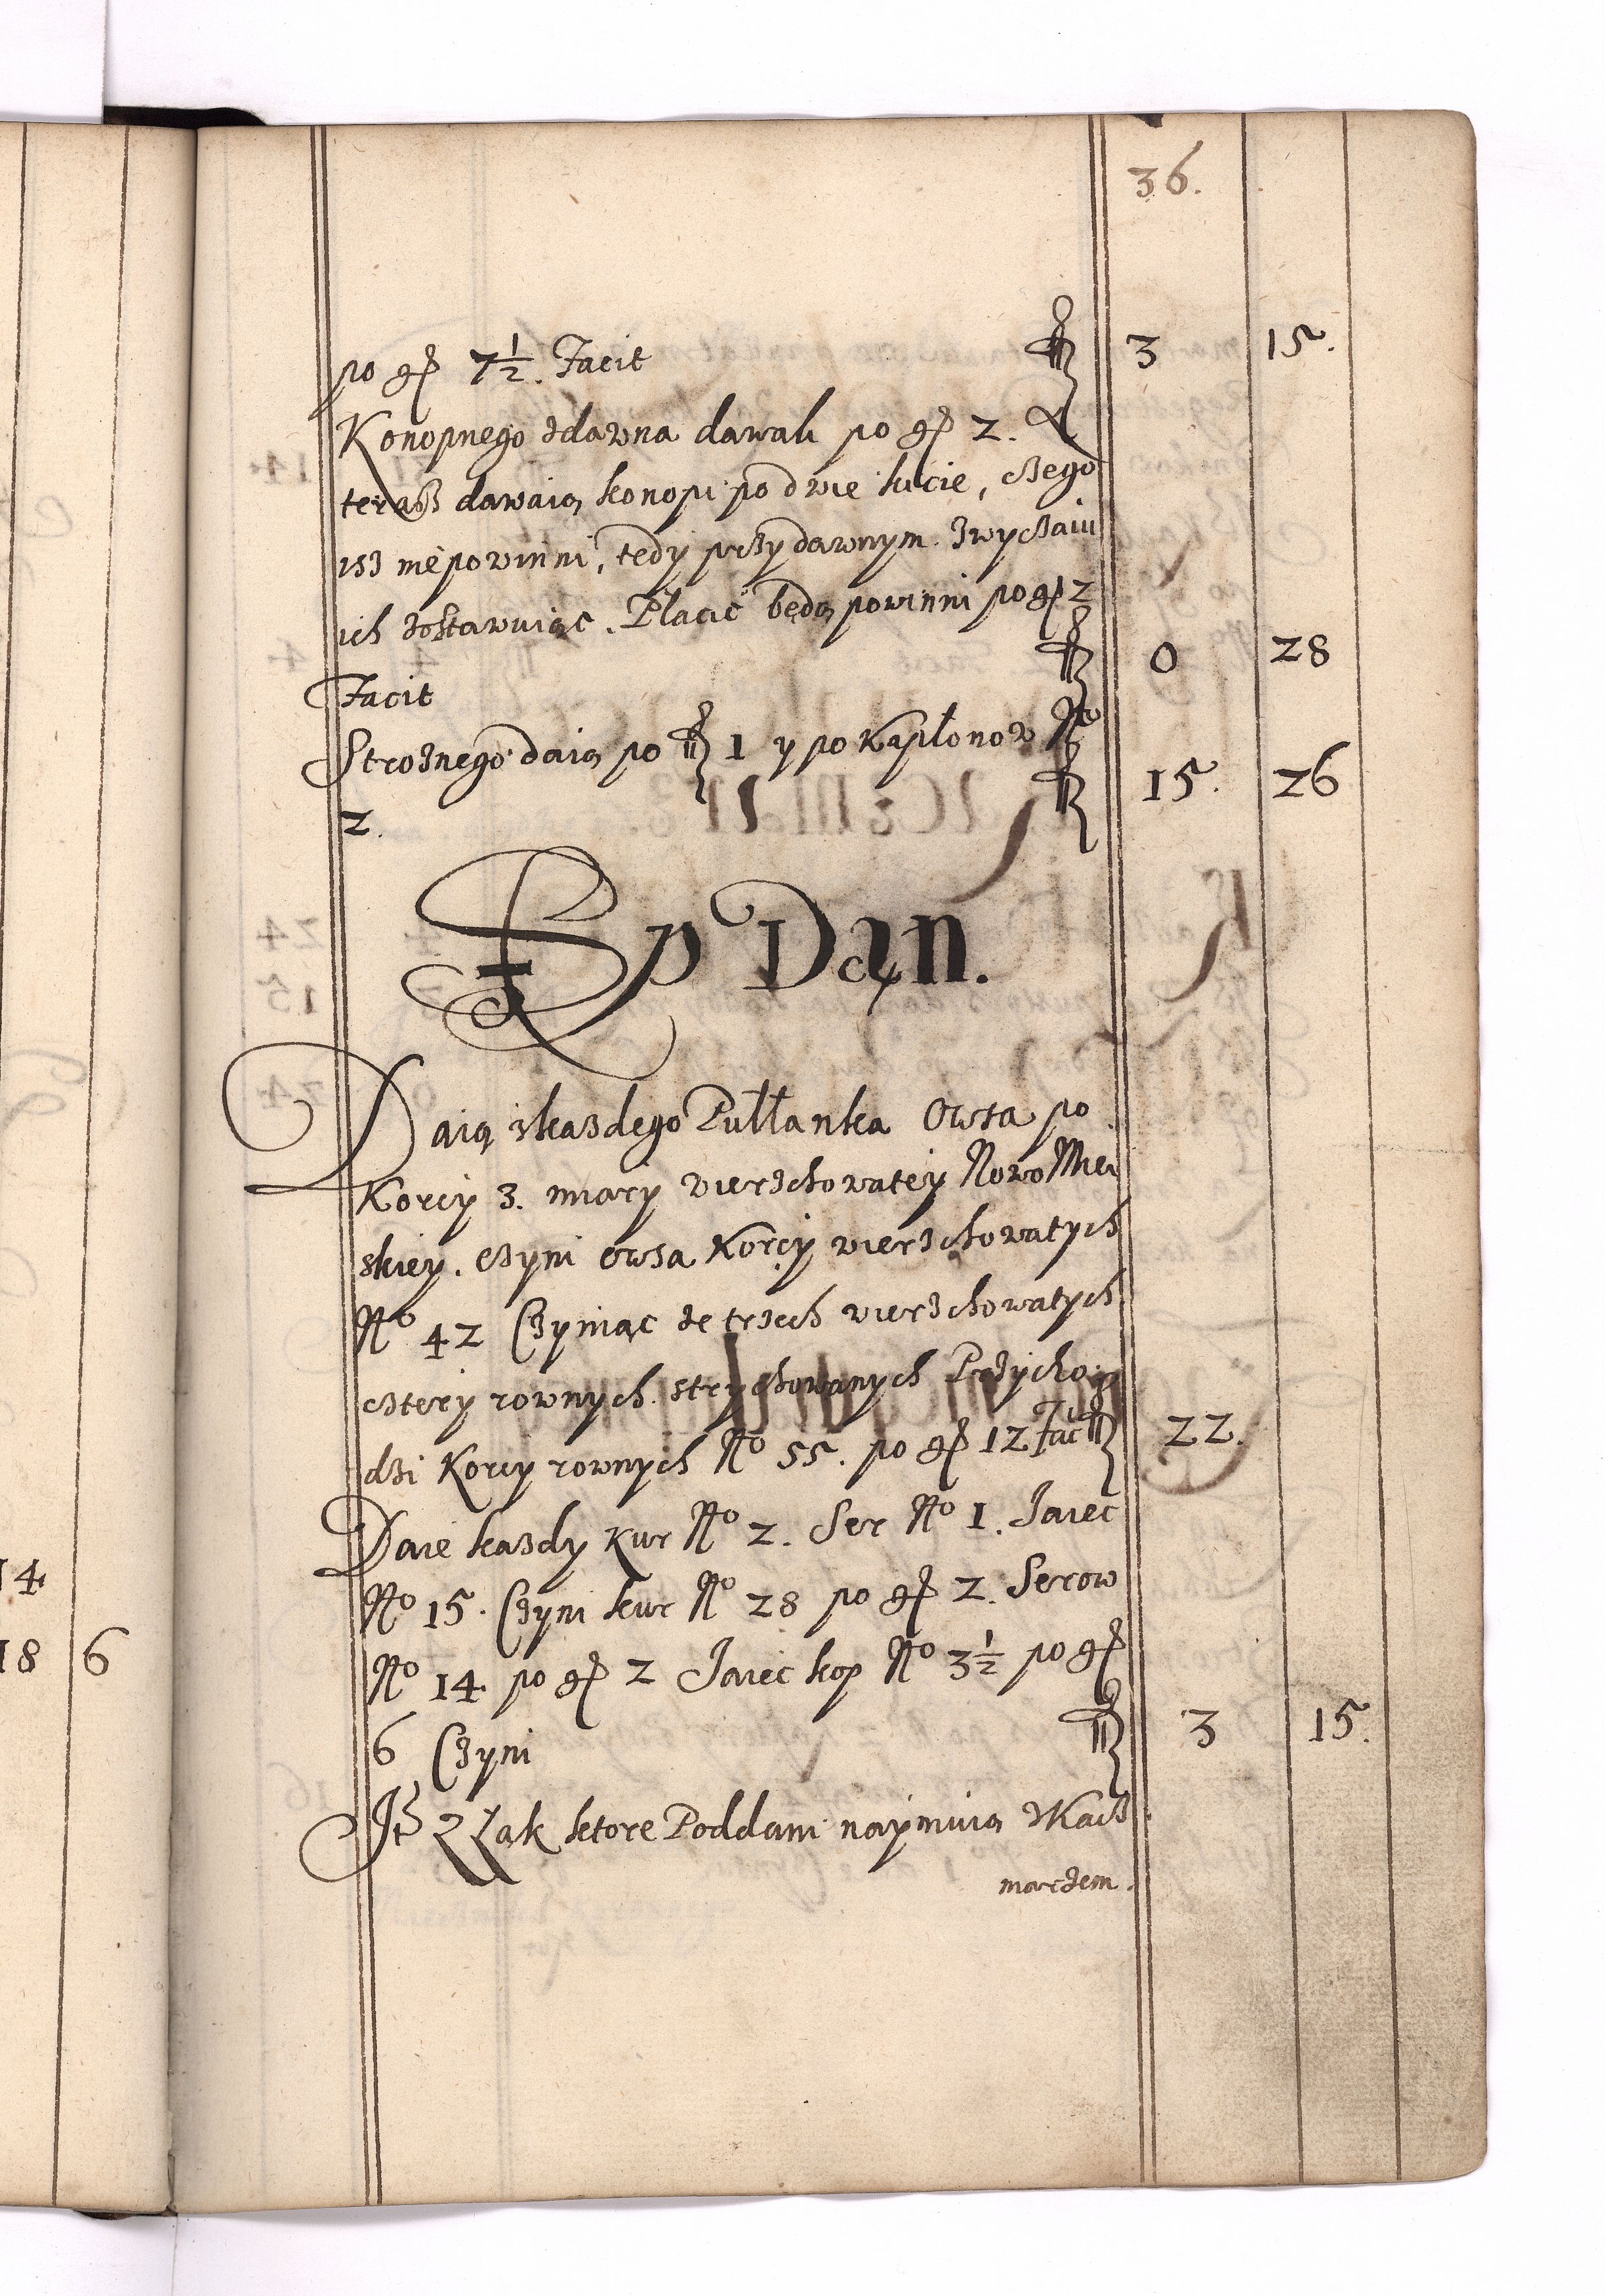 36.
po gr 7½. Facit fl 3 15.
Konopnego zdawna dawali po gr 2. A
terasz dawaią konopi po dwie kicie, czego
isz niepowinni, tedy przy dawnym zwyczaiu
ich zostawuiąc. Płacić będą powinni po gr 2
Facit fl 0 28
Stroznego daią po fl 1 y po Kapłonow No
2. fl 15. 26
Sep Dan.
Daią zkazdego Pułłanka Owsa po
Korcy 3. miary wierzchowatey NowoMiei
skiey. czyni owsa Korcy wierzchowatych
No 42 Czyniąc ze trzech wierzchowatych
cztery rownych strychowanych Przycho
dzi Korcy rownych No 55. po gr 12 Fac fl 22.
Daie kazdy Kur No 2. Ser No 1. Iaiec
No 15. Czyni kur No 28 po gr 2. Serow
No 14 po gr 2 Iaiec kop No 3½ po gr
6 Czyni fl 3 15.
It Z Łąk ktore Poddani naymuią
marzem.
14
18 6